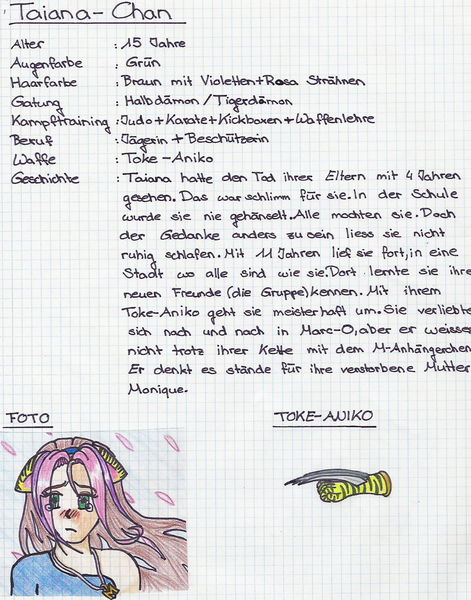 Taiana-Chan
Alter : 15 Jahre
Augenfarbe : Grün
Haarfarbe : Braun mit Violetten+Rosa Strähnen
Gatung : Halbdämon/Tigerdämon
Kampftraining : Judo+Karate+Kickboxen+Waffenlehre
Beruf : Jägerin+Beschützerin
Waffe : Toke-Aniko
Geschichte : Taiana hatte den Tod ihrer Eltern mit 4 Jahren
gesehen. Das war schlimm für sie. In der Schule
wurde sie nie gehänselt. Alle mochten sie. Doch
der Gedanke anders zu sein liess sie nicht
ruhig schlafen. Mit 11 Jahren lief sie fort, in eine
Stadt wo alle sind wie sie. Dort lernte sie ihre
neuen Freunde (die Gruppe) kennen. Mit ihrem
Toke-Aniko geht sie meisterhaft um. Sie verliebte
sich nach und nach in Marc-O, aber er weisses
nicht trotz ihrer Kette mit dem M-Anhängerchen.
Er denkt es stände für ihre verstorbene Mutter
Monique.
FOTO
TOKE-ANIKO